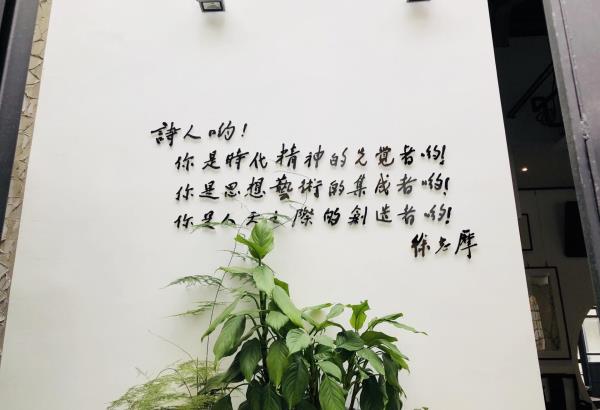 詩人哟!
你是時代精神的先覺者哟!
你是思想藝術的集成者哟!
你是人天之際的創造者哟!
徐志摩